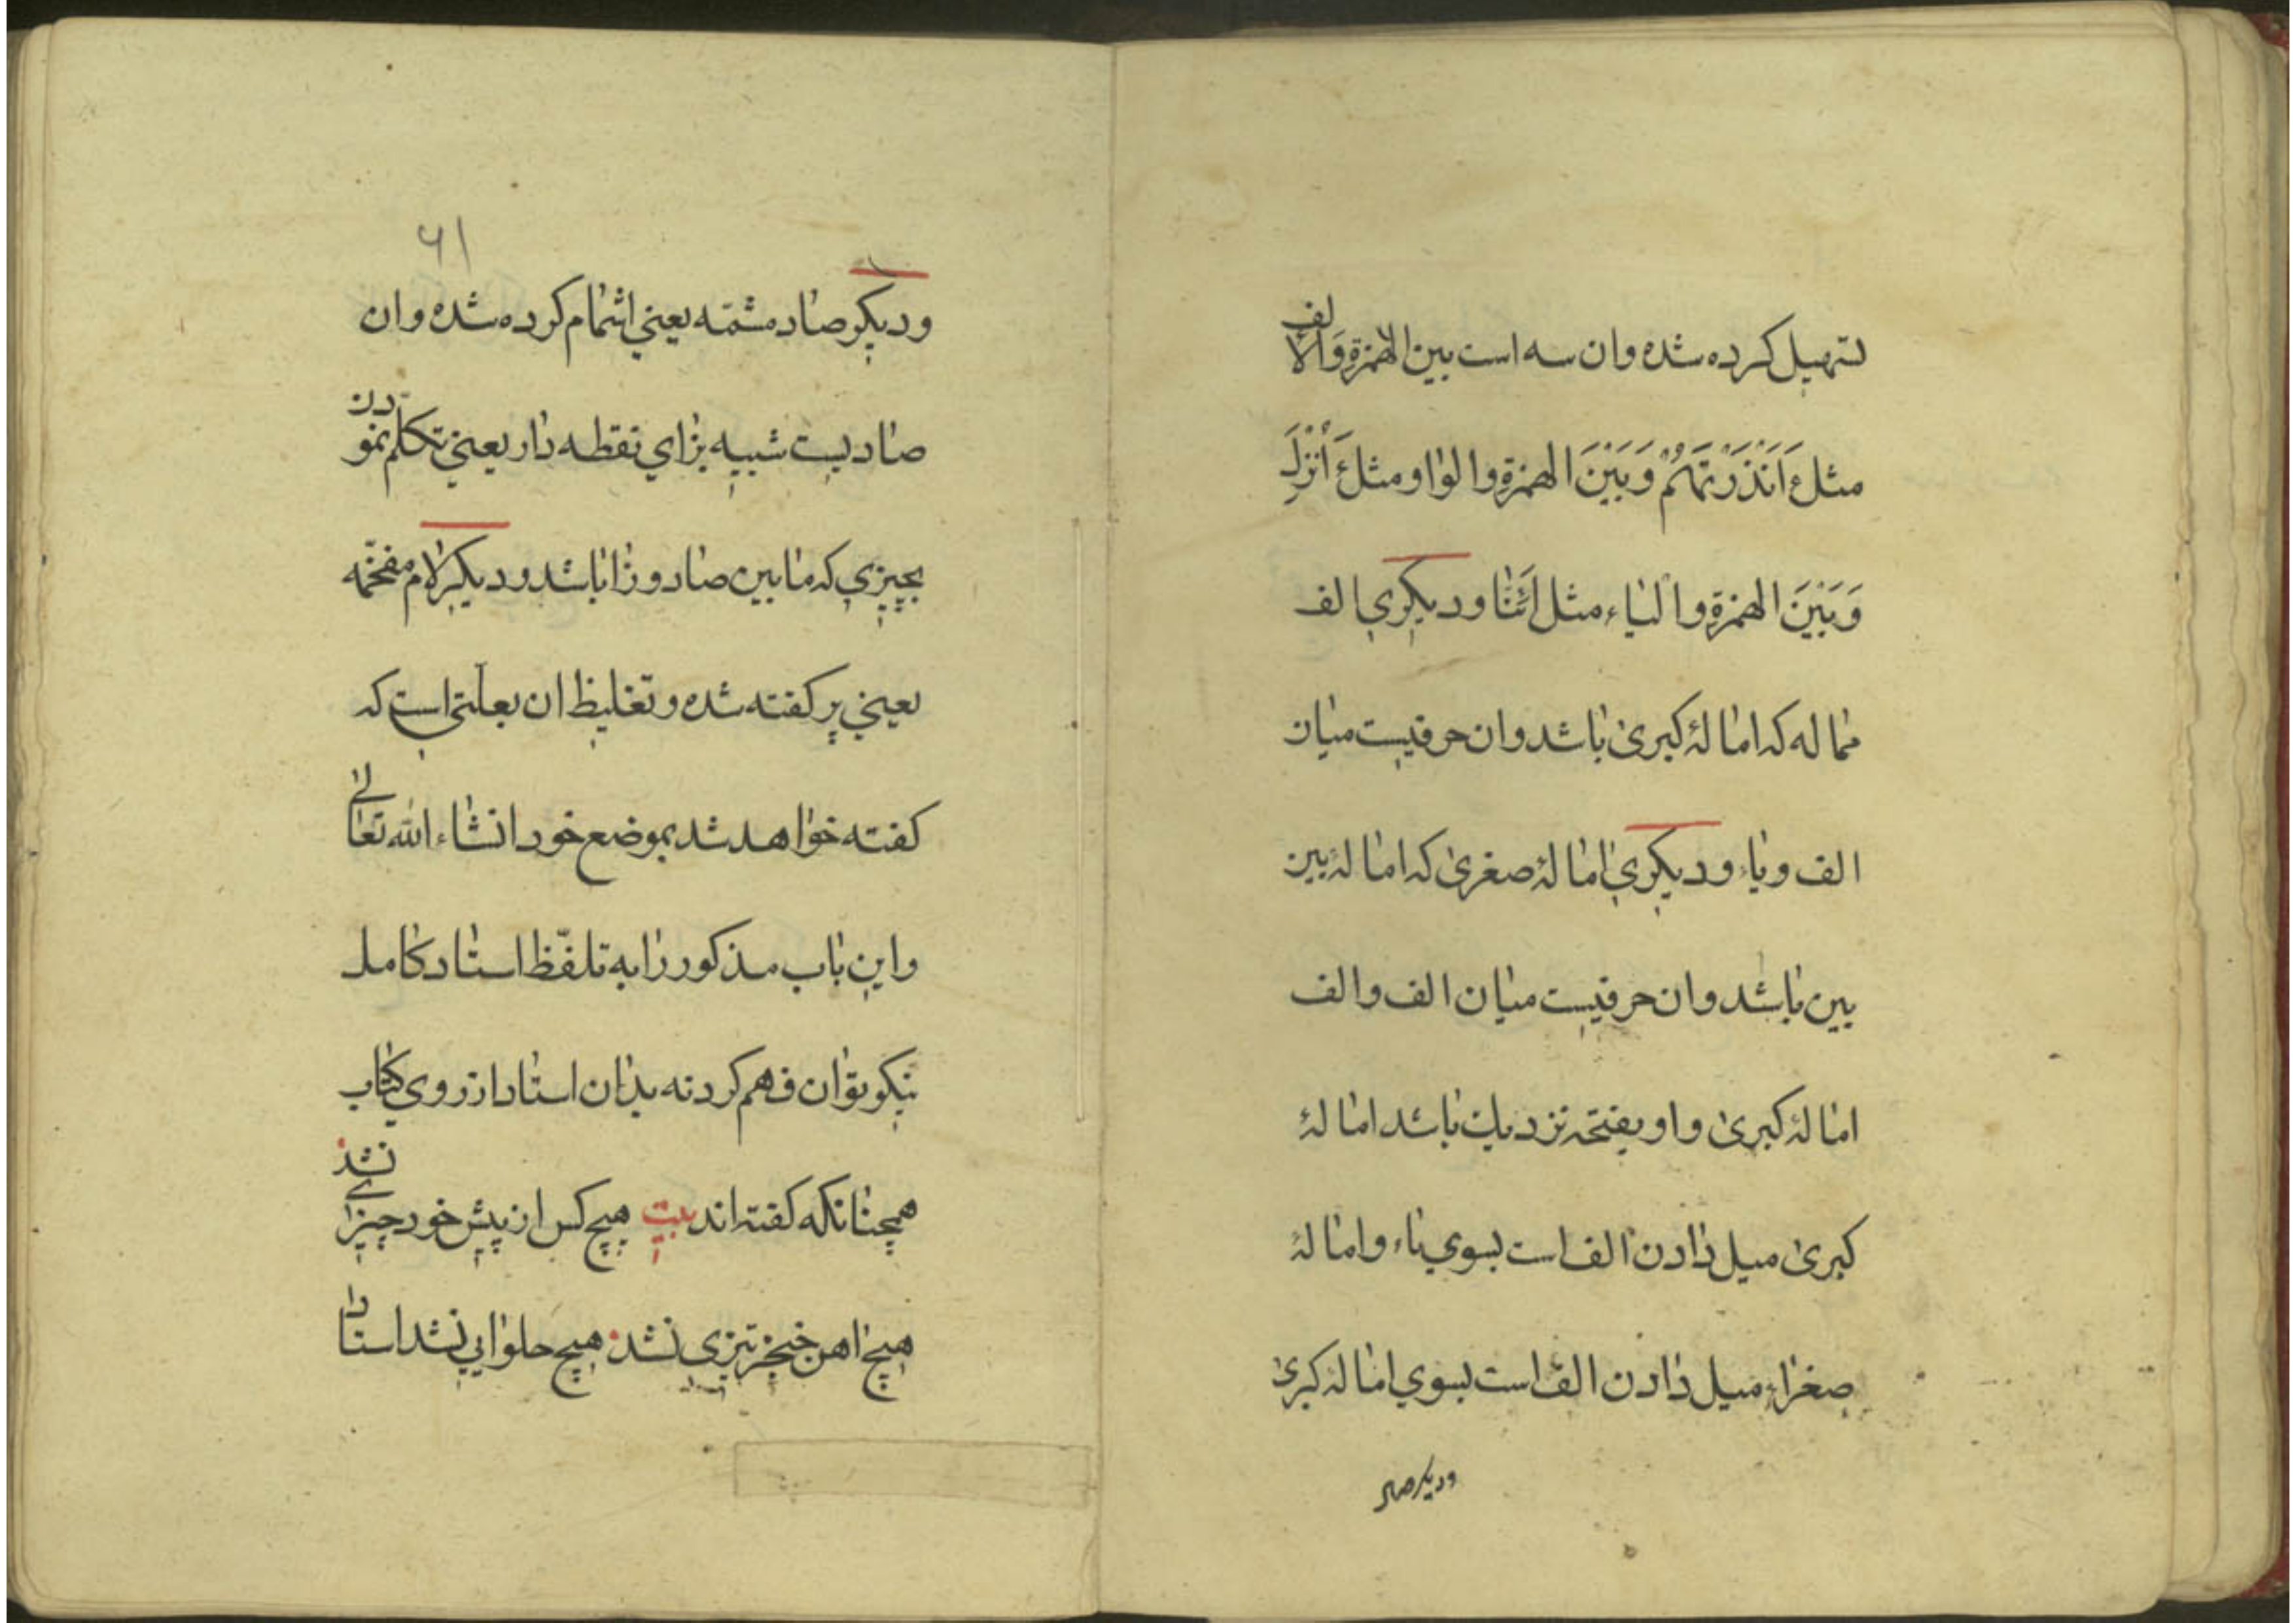 تسهیل کرده شده وان سه است بین الهمزةِ وَالالف
مثل ءَاَنْذَرْتَهُمْ وَبَيْنَ الهمزةِ والواو ومثل ءَاُنْزِلَ
وَبَيْنَ الهمزةِ والْیاء مثل اَئِنَّا ودیکری الف
مماله که امالهٔ کبریٰ باشد وان حرفیست میان
الف ویاء ودیکری امالهٔ صغریٰ که امالهٔ بین
بین باشد وان حرفیست میان الف والف
امالهٔ کبریٰ واو بفتحه نزدیك باشد امالهٔ
کبریٰ میل دادن الف است بسوی یاء وامالهٔ
صغراء میل دادن الف است بسوی امالهٔ کبریٰ
ودیکر صاد
۶۱
ودیکر صاد مشمّه یعنی اشمام کرده شده وان
صادیست شبیه بزای نقطه دار یعنی تکلم نمودن
بچیزی که مابین صاد وزا باشد ودیکر لام مفخّمه
یعنی پر کفته شده وتغلیظ ان بعلّتی است که
کفته خواهد شد بموضع خود انشاء الله تعالی
واین باب مذکور را به تلفّظ استاد کامل
نیکو توان فهم کرد نه بدان استاد از روی کتاب
همچنانکه کفته اند بیت هیچ کس از پیش خود چیزی نشد
هیچ اهن خنجر تیزی نشد هیچ حلوایی نشد استاد